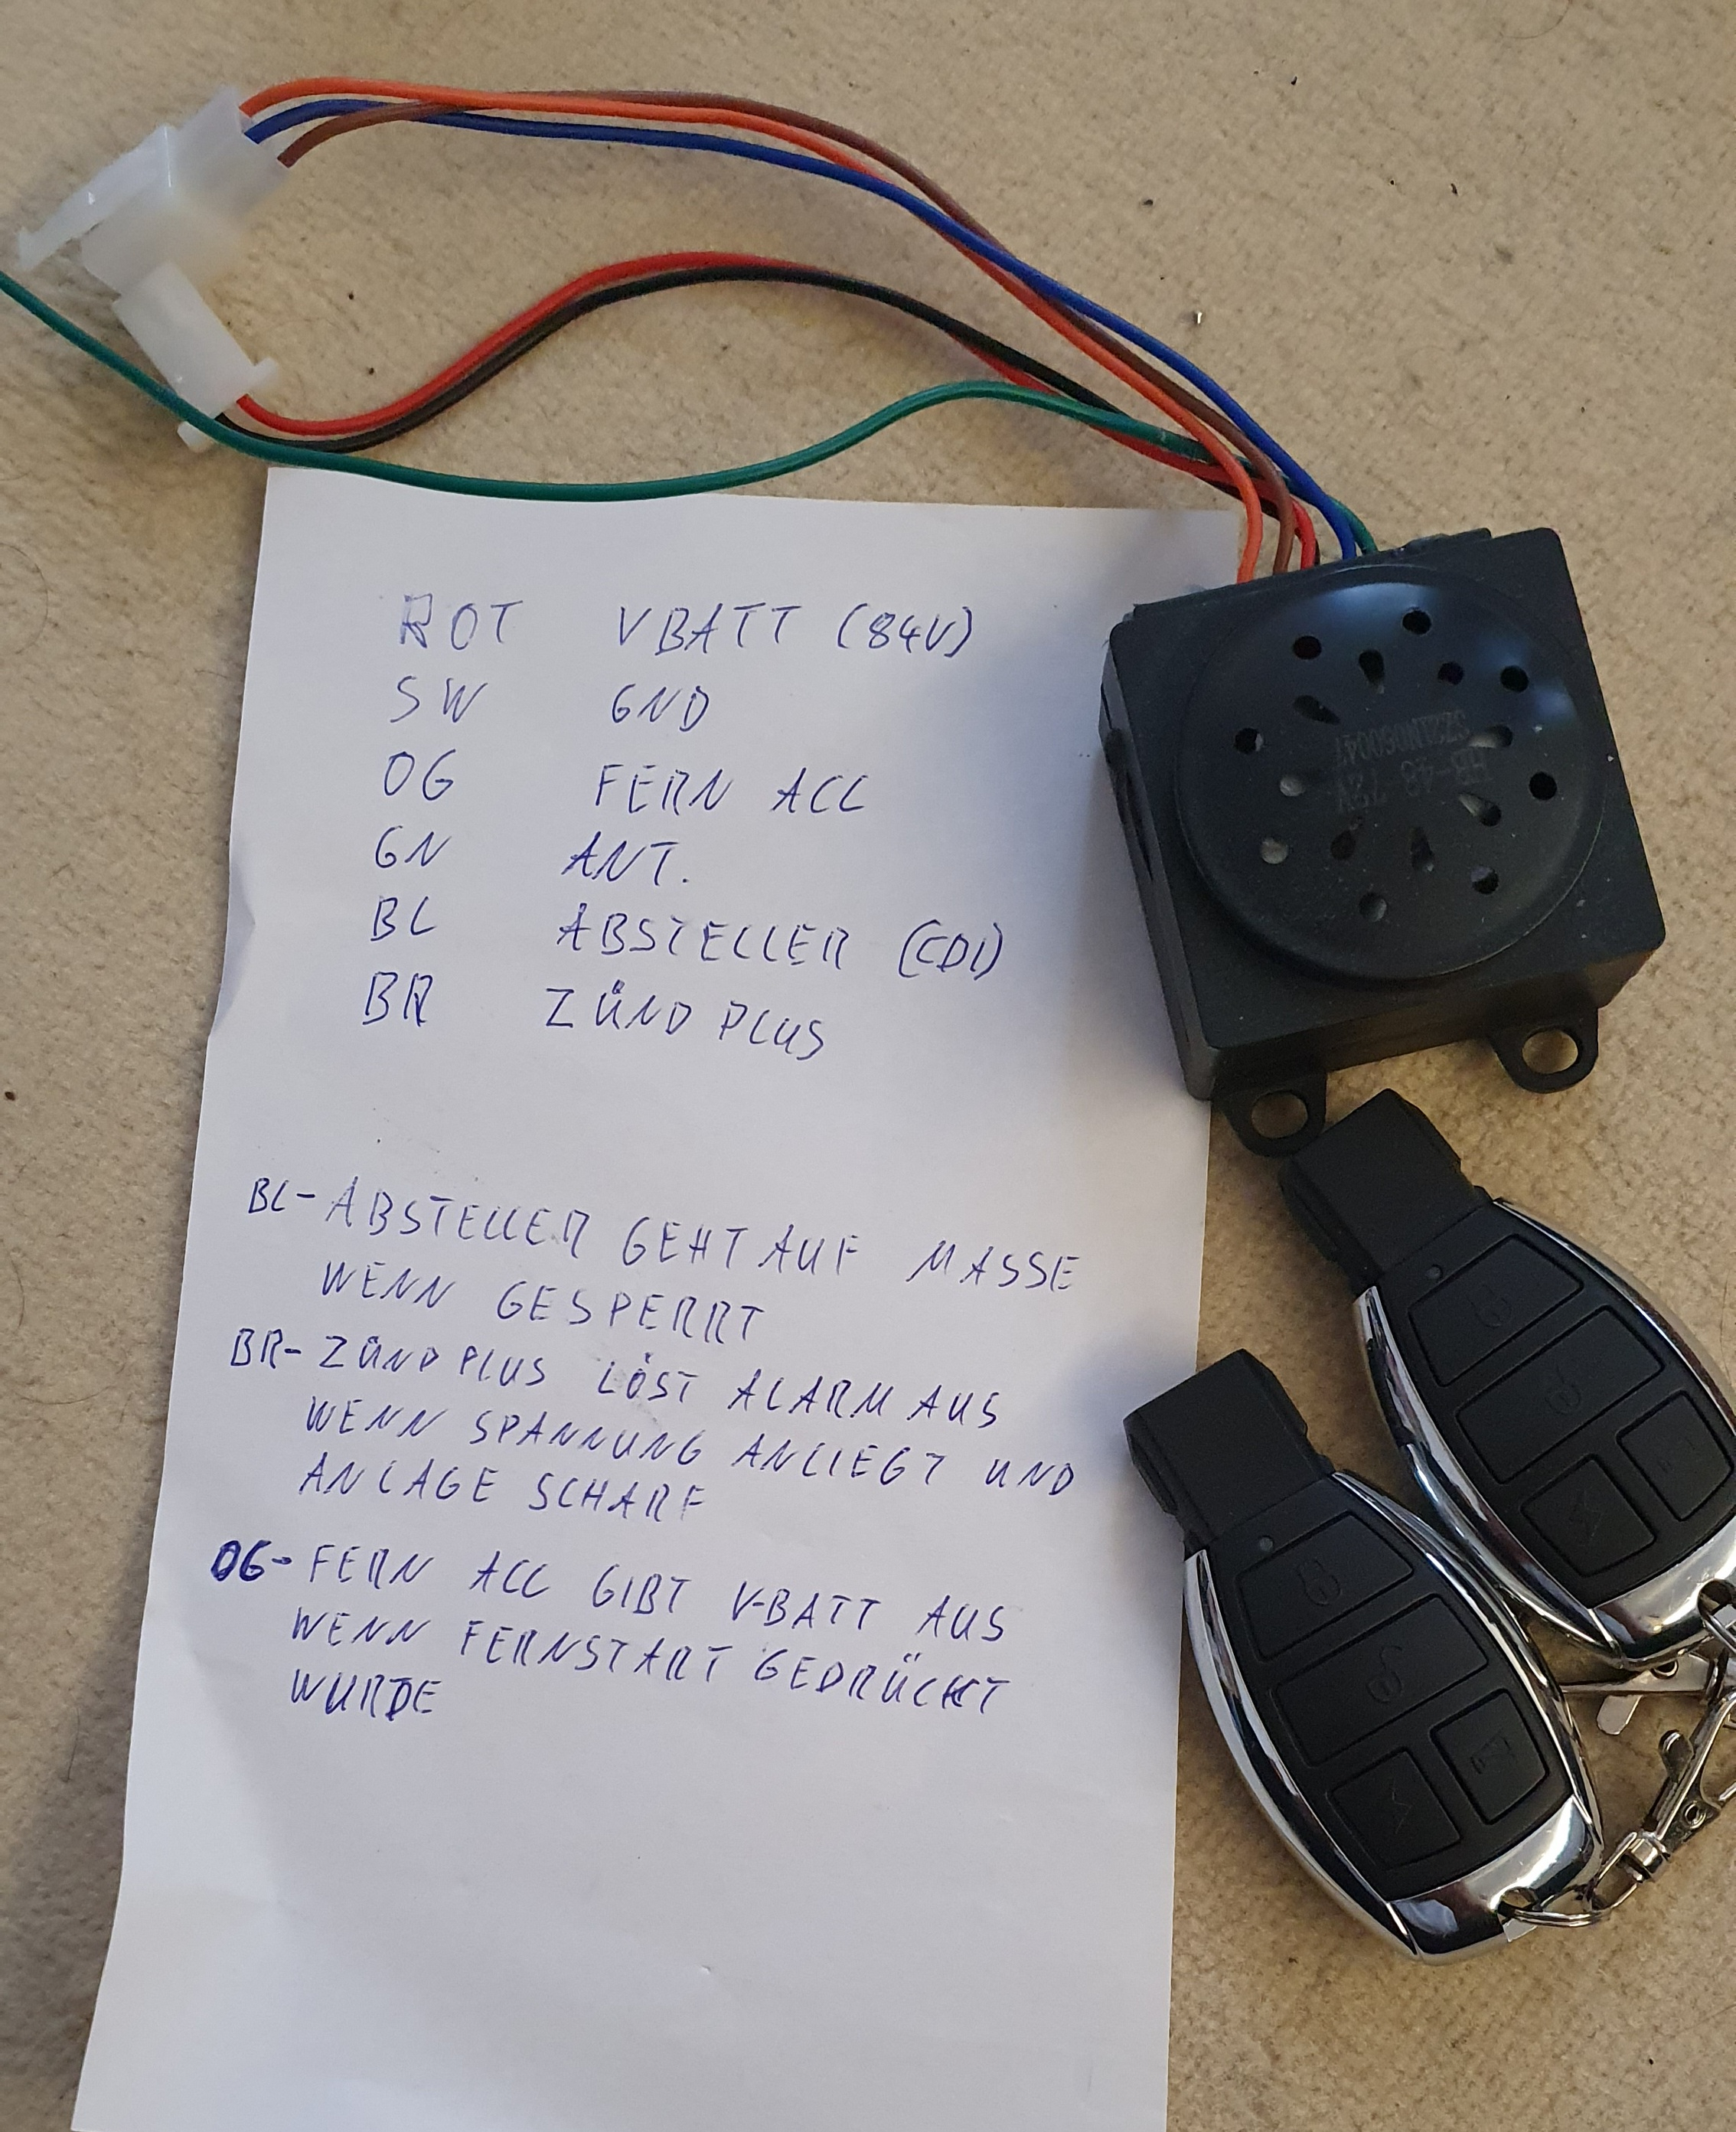 ROT VBATT (84V)
SW GND
OG FERN ACC
GN ANT.
BL ABSTELLER (CDI)
BR ZÜNDPLUS
BL- ABSTELLER GEHT AUF MASSE
WENN GESPERRT
BR- ZÜNDPLUS LÖST ALARM AUS
WENN SPANNUNG ANLIEGT UND
ANLAGE SCHARF
OG- FERN ACC GIBT V-BATT AUS
WENN FERNSTART GEDRÜCKT
WURDE
HB-48 72V